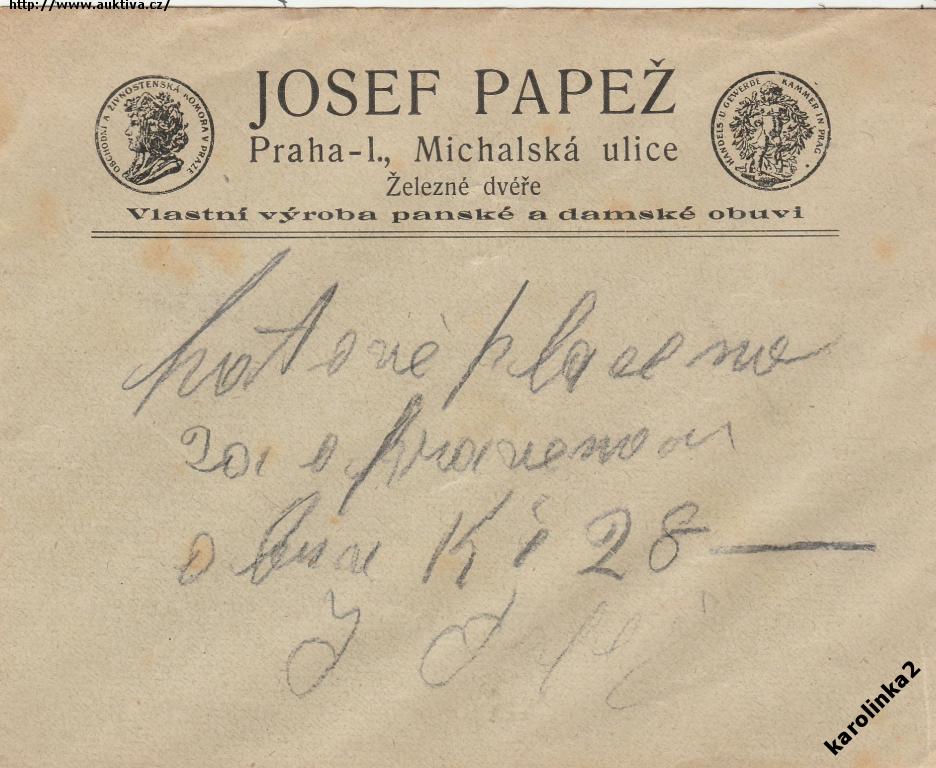 http://www.auktiva.cz/
JOSEF PAPEŽ
Praha-I., Michalská ulice
Železné dvéře
Vlastní výroba panské a damské obuvi
OBCHODNÍ A ŽIVNOSTENSKÁ KOMORA V PRAZE
HANDELS U. GEWERBE KAMMER IN PRAG
hotově placeno
za opravenou
obuv Kč 28 —
J Papež
karolinka2